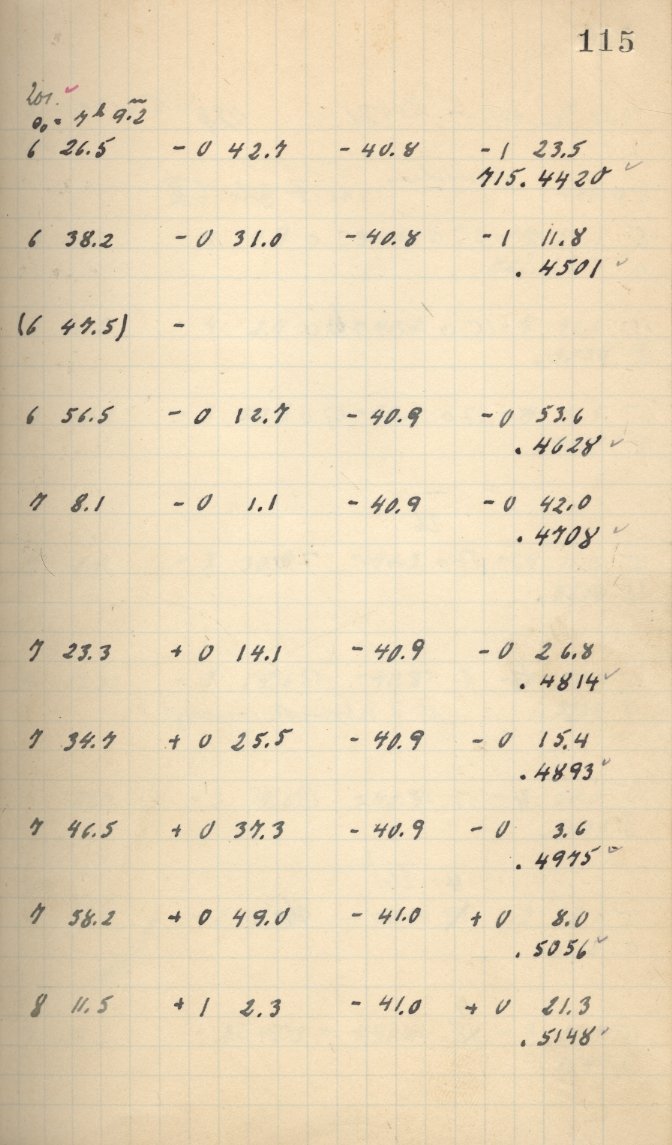 115
θ₀ = 7ʰ 9.ᵐ2
6 26.5 - 0 42.7 - 40.8 - 1 23.5
715.4420 ✓
6 38.2 - 0 31.0 - 40.8 - 1 11.8
.4501 ✓
(6 47.5) -
6 56.5 - 0 12.7 - 40.9 - 0 53.6
.4628 ✓
7 8.1 - 0 1.1 - 40.9 - 0 42.0
.4708 ✓
7 23.3 + 0 14.1 - 40.9 - 0 26.8
.4814 ✓
7 34.7 + 0 25.5 - 40.9 - 0 15.4
.4893 ✓
7 46.5 + 0 37.3 - 40.9 - 0 3.6
.4975 ✓
7 58.2 + 0 49.0 - 41.0 + 0 8.0
.5056 ✓
8 11.5 + 1 2.3 - 41.0 + 0 21.3
.5148 ✓